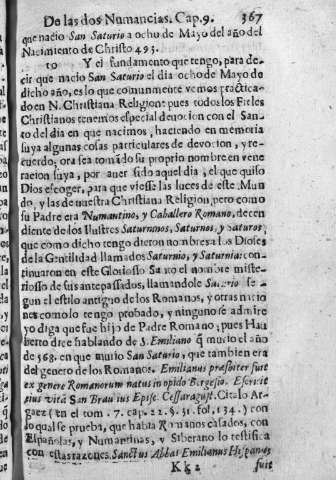 De las dos Numancias. Cap.9. 367
que nacio San Saturio a ocho de Mayo del año del
Nacimiento de Christo 493.
10 Y el fundamento que tengo, para de-
cir que nacio San Saturio el dia ocho de Mayo de
dicho año, es lo que comunmente vemos practica-
do en N. Christiana Religion: pues todos los Fieles
Christianos tenemos especial devocion con el San-
to del dia en que nacimos, haciendo en memoria
suya algunas cosas particulares de devocion, y re-
cuerdo, ora sea tomādo su proprio nombre en vene
racion suya, por auer sido aquel dia, el que quiso
Dios escoger, para que viesse las luces de este Mun
do, y las de nuestra Christiana Religion, pero como
su Padre era Numantino, y Caballero Romano, decen
diente de los Ilustres Saturninos, Saturnos, y Saturos;
que como dicho tengo dieron nombres a los Dioses
de la Gentilidad llamados Saturnio, y Saturnia: con-
tinuaron en este Glorioso Santo el nombre miste-
rioso de sus antepassados, llamandole Saturio se-
gun el estilo antiguo de los Romanos, y otras nacio
nes como lo tengo probado, y ninguno se admire
yo diga que fue hijo de Padre Romano; pues Hau
berto dice hablando de S. Emiliano q̃ murio el año
de 568. en que murio San Saturio, que tambien era
del genero de los Romanos. Emilianus præsbiter fuit
ex genere Romanorum natus in opido Bergesio. Escrivit
eius vitā San Braulius Episc. Cessaragust. Citalo Ar-
gaez (en el tom. 7. cap. 22. §. 31. fol, 134.) con
lo qual se prueba, que habia Romanos casados, con
Españolas, y Numantinas, y Siberano lo testifica
con estas razones. Sanctus Abbas Emilianus Hispanus
Kk2 fuit